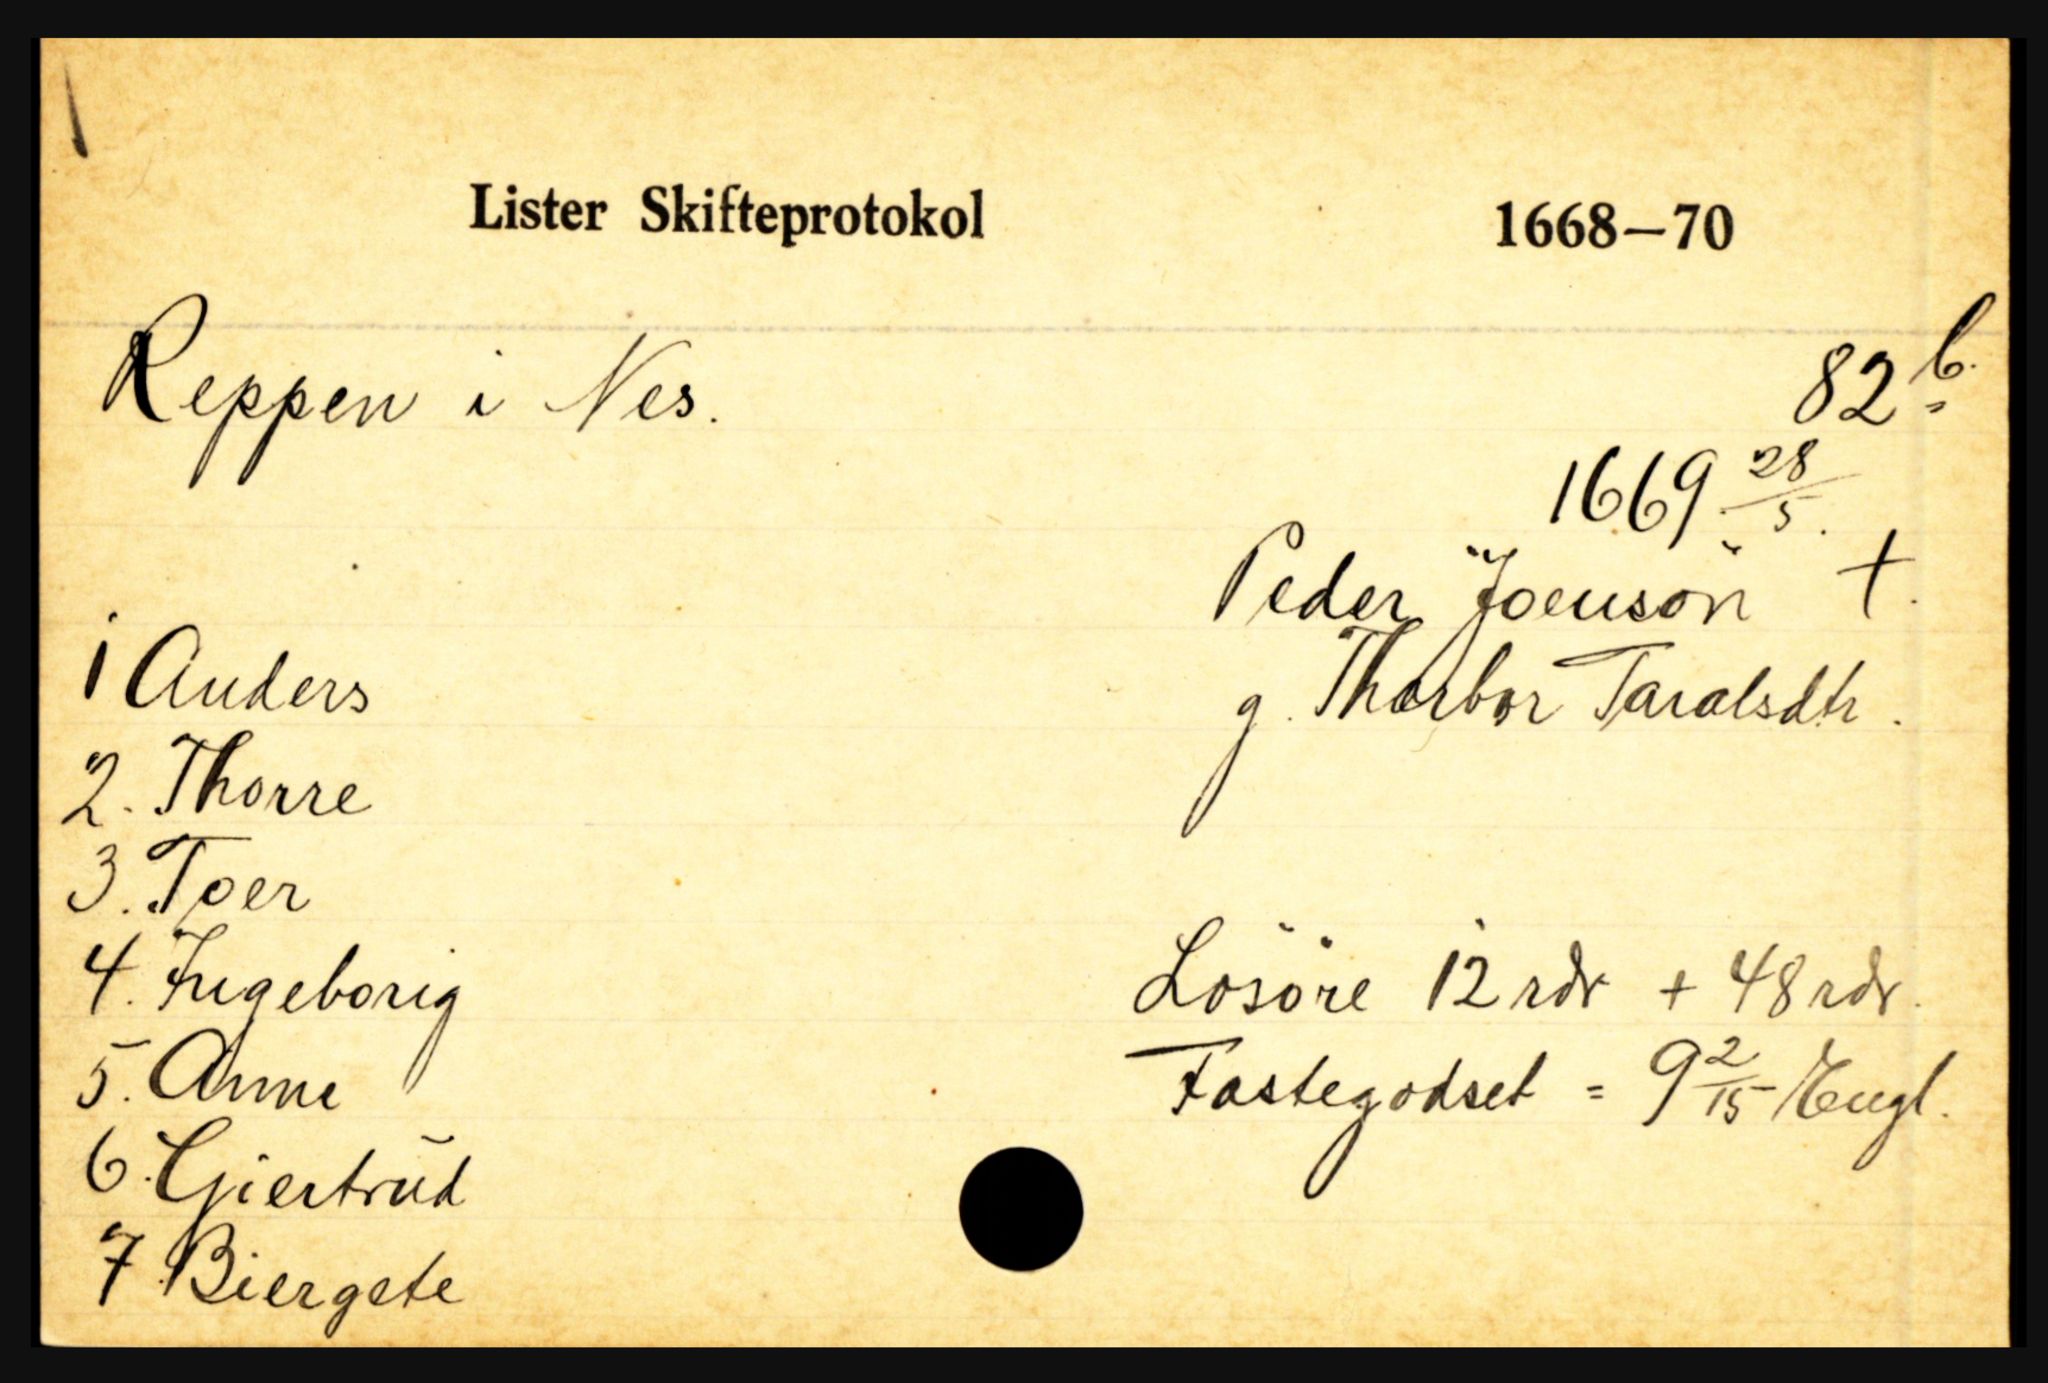 Lister Skifteprotokol 1668–70
Reppen i Nes. 82 b.
1669 28/5.
Peder Joensön +.
g. Thorbor Taralsdtr.
1 Anders
2. Thorre
3. Toer
4. Ingeborig
5. Anne
6. Giertrud
7. Biergete
Losöre 12 rdr + 48 rdr.
Fastegodset = 9 2/15 Engl.